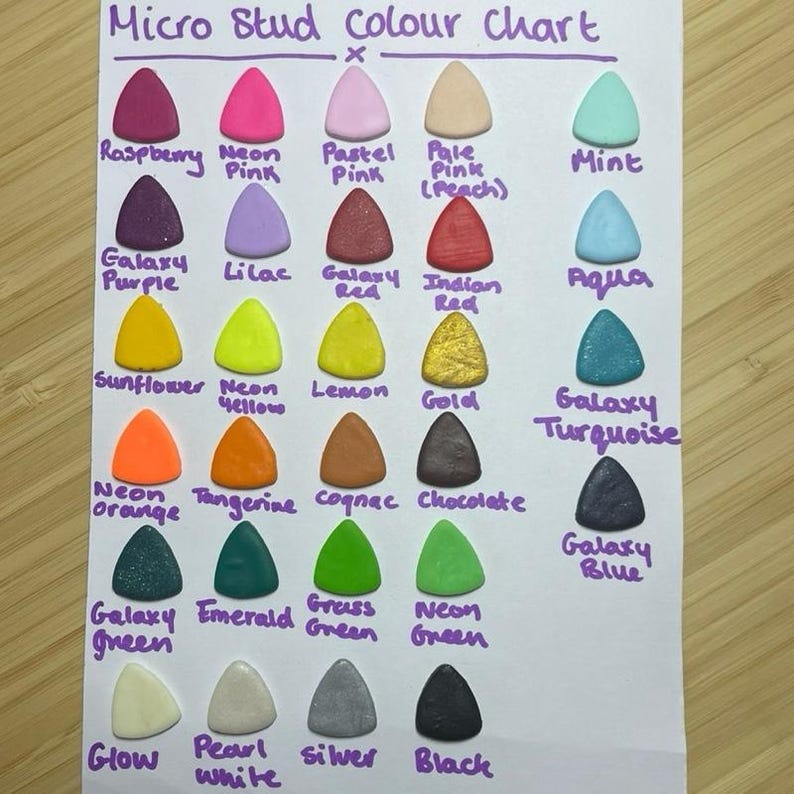 Micro Stud Colour Chart
x
Raspberry
Neon
Pink
Pastel
Pink
Pale
Pink
(Peach)
Mint
Galaxy
Purple
Lilac
Galaxy
Red
Indian
Red
Aqua
Sunflower
Neon
Yellow
Lemon
Gold
Galaxy
Turquoise
Neon
Orange
Tangerine
Cognac
Chocolate
Galaxy
Blue
Galaxy
Green
Emerald
Grass
Green
Neon
Green
Glow
Pearl
White
Silver
Black